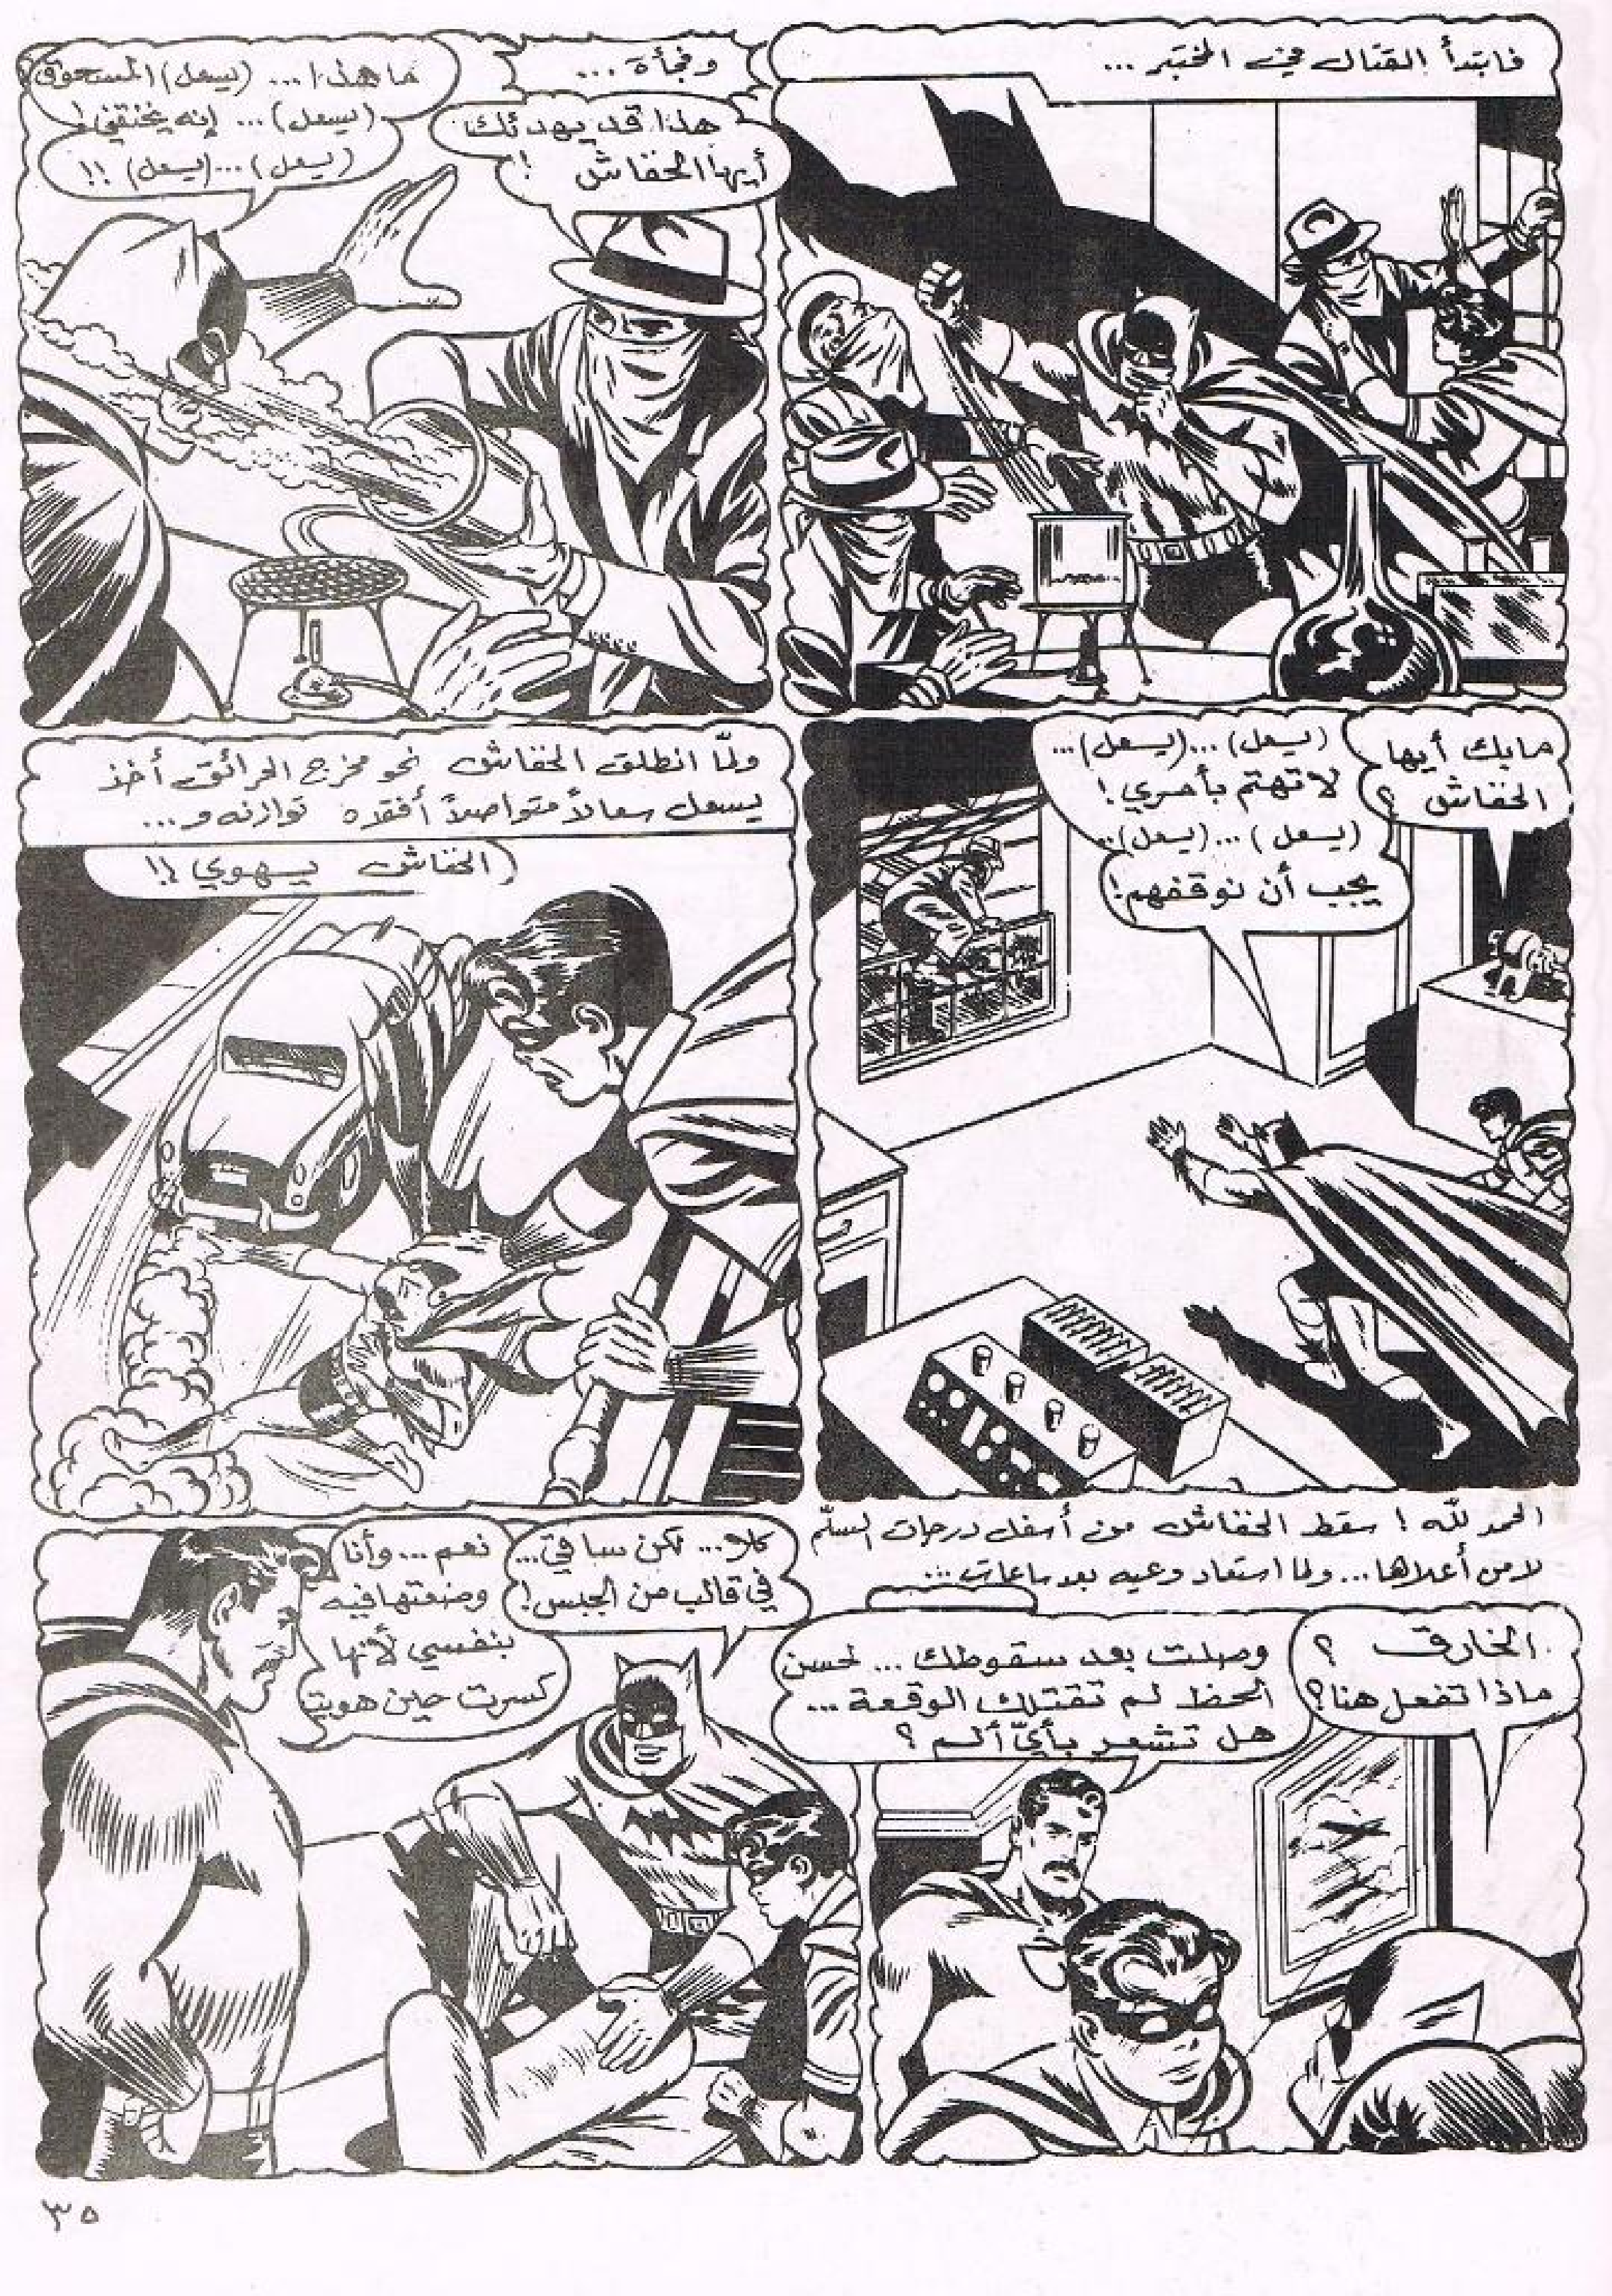 فابتدأ القتال في المختبر ...
وفجأة ...
هذا قد يهدئك
أيها الخفاش !
ما هذا ... (يسعل) المسحوق
(يسعل) ... إنه يخنقني !
(يسعل) ... (يسعل) !!
ما بك أيها
الخفاش ؟
(يسعل) ... (يسعل) ...
لا تهتم بأمري !
(يسعل) ... (يسعل) ..
يجب أن نوقفهم !
ولمّا انطلق الخفاش نحو مخرج الحرائق أخذ
يسعل سعالاً متواصلاً أفقده توازنه و...
الخفاش يهوي !!
الحمد لله ! سقط الخفاش من أسفل درجات السلّم
لا من أعلاها ... ولما استعاد وعيه بعد ساعات ...
الخارق ؟
ماذا تفعل هنا ؟
وصلت بعد سقوطك ... لحسن
الحظ لم تقتلك الوقعة ...
هل تشعر بأيّ ألم ؟
كلا ... لكن ساقي ...
في قالب من الجبس !
نعم ... وأنا
وضعتها فيه
بنفسي لأنها
كسرت حين هويت
٣٥